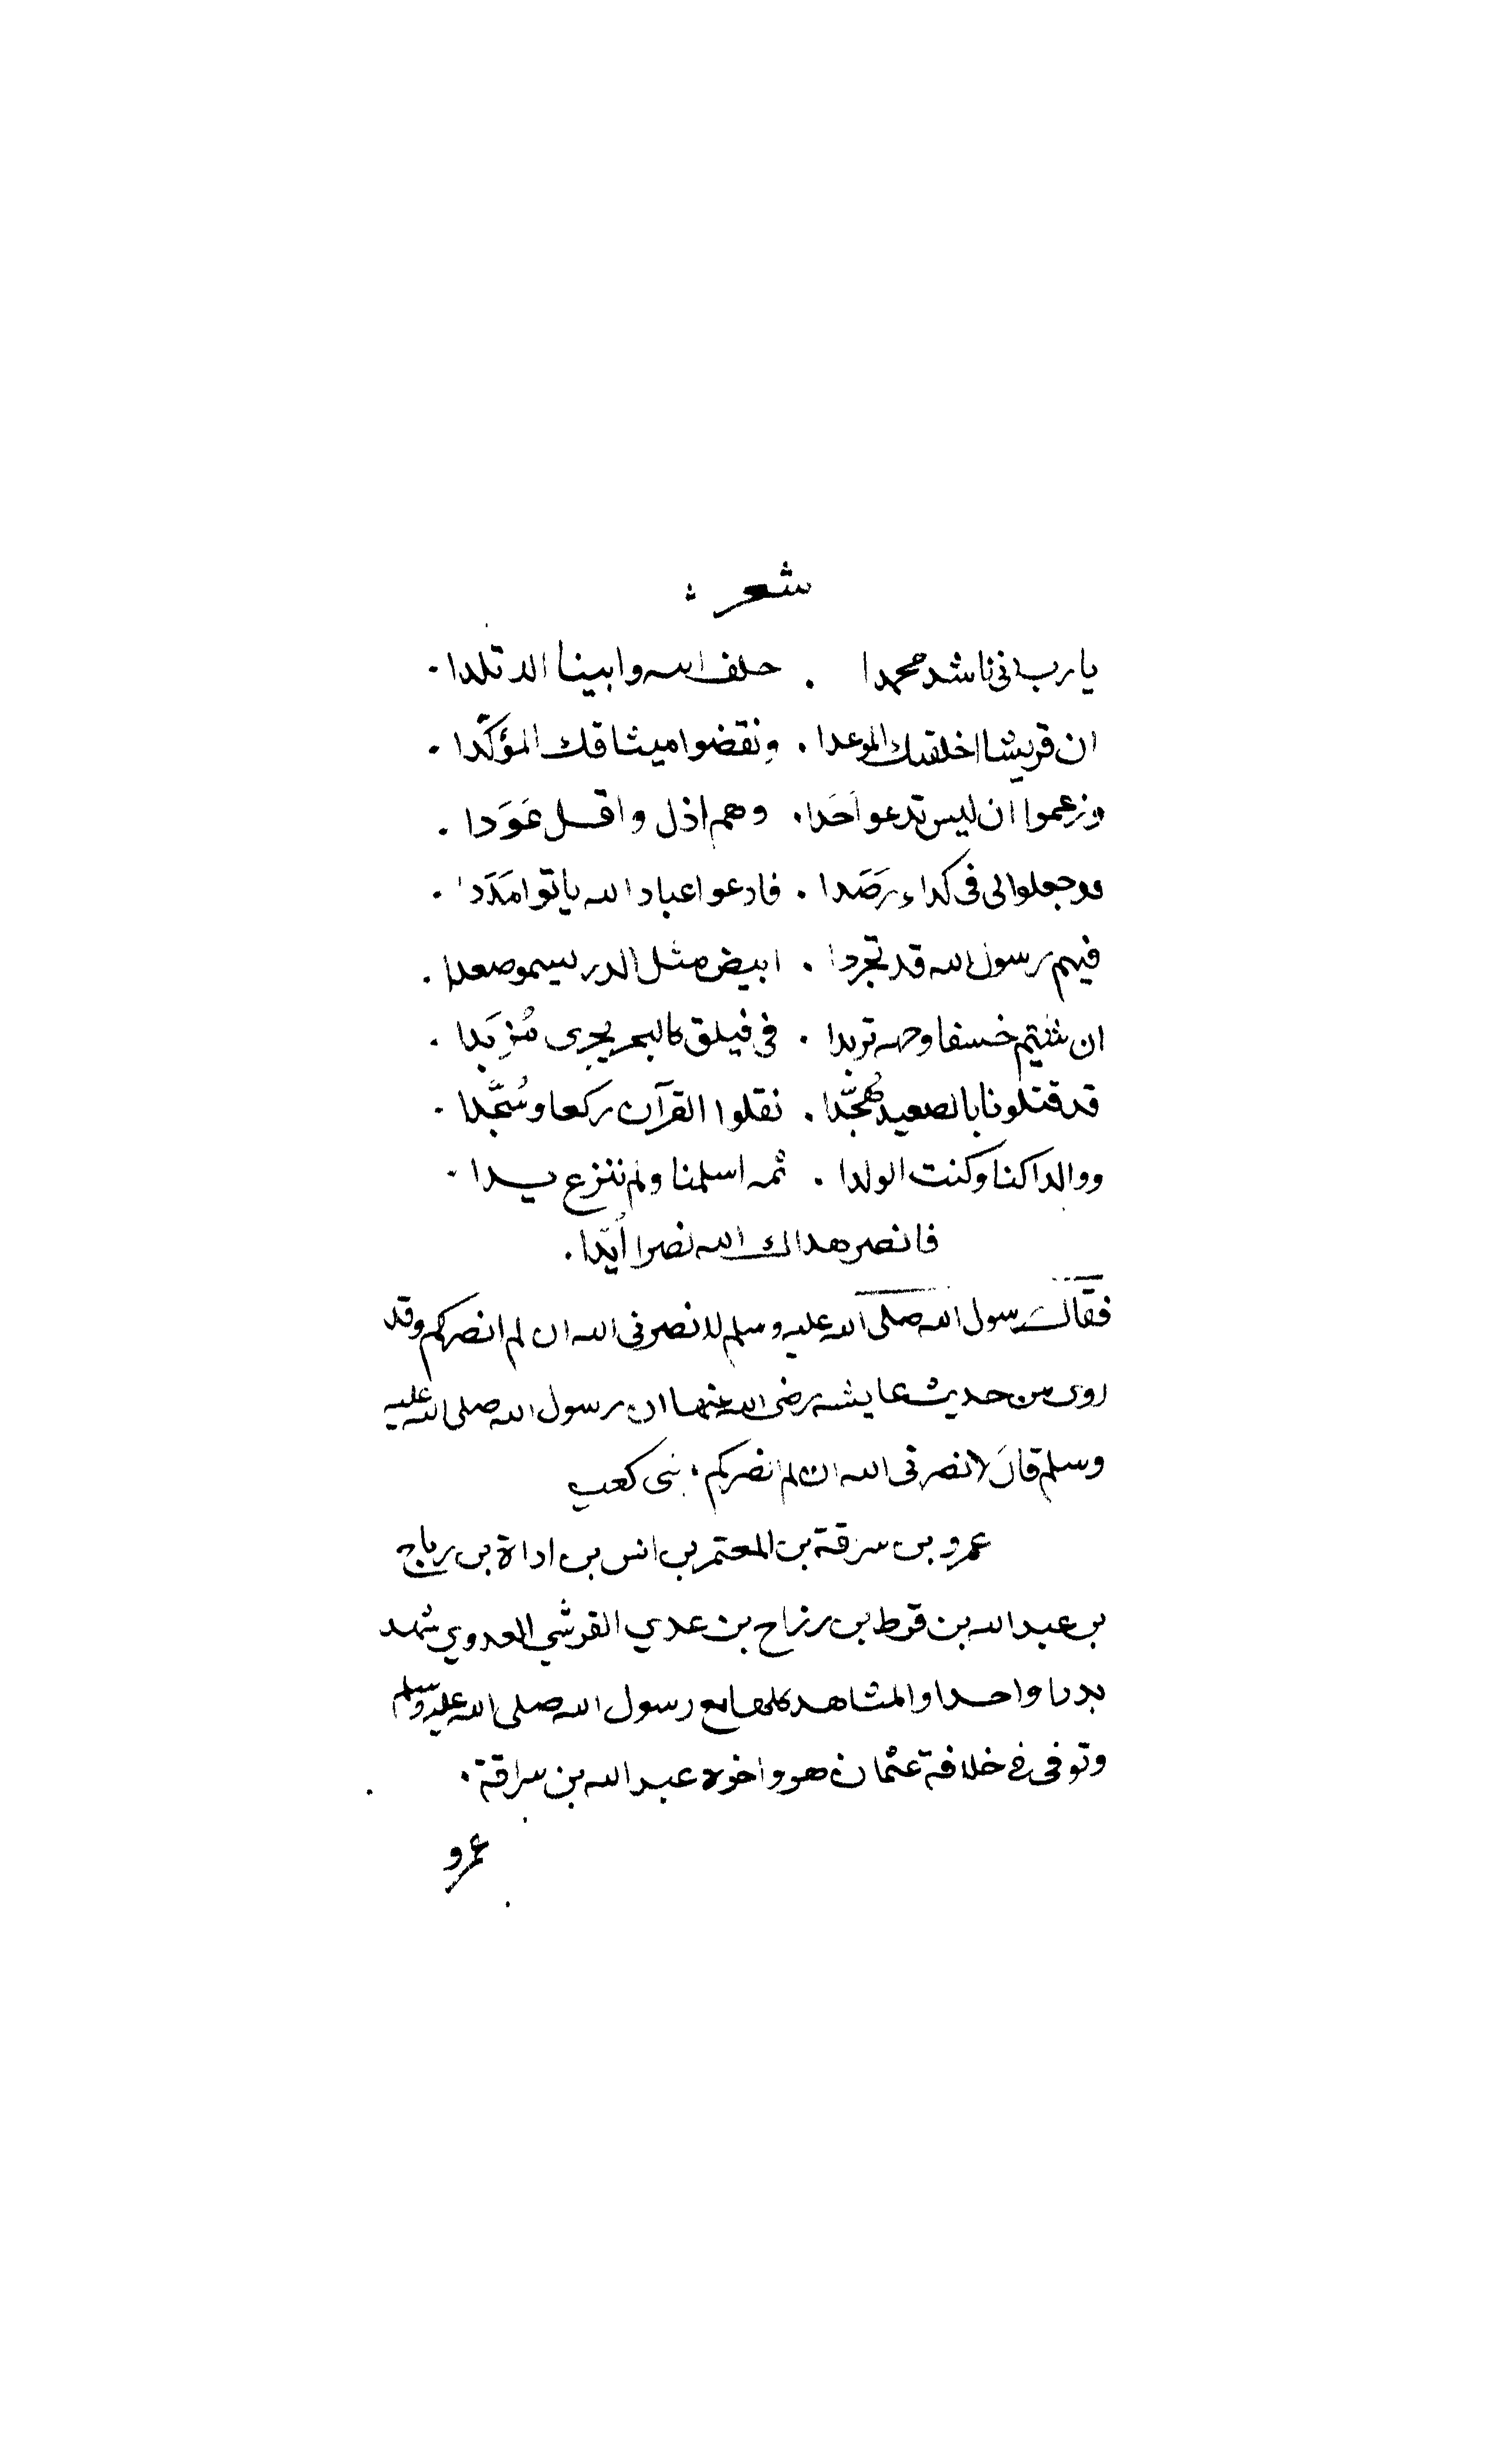 شعر
يا رب انى ناشد محمدا . حلف ابيه وابينا الاتلدا .
ان قريشا اخلفتك الموعدا . ونقضوا ميثاقك المؤكّدا .
وزعموا ان ليس تدعو احَدا . وهم اذل واقل عَدَدا .
وجعلوا لى فى كداء رَصَدا . فادعو اعباد الله ياتوا مَدَدا .
فيهم رسول الله قد تجردا . ابيض مثل البدر يسمو صعدا .
ان شئتم خسفا وجهه تربدا . فى فيلق كالبحر يجرى مُزبَدا .
قد قتلونا بالصعيد هُجّدا . نقلوا القرآن ركعا وسُجّدا .
ووالدا كنا وكنت الولدا . ثمه اسلمنا ولم ننزع يدا .
فانصر هداك الله نصرا أيّدا .
فقال رسول الله صلى الله عليه وسلم لا نصرنى الله ان لم انصركم وقد
روى من حديث عايشه رضى الله عنها ان رسول الله صلى الله عليه
وسلم قالَ لا نصرنى الله ان لم انصركم . بنى كعب
عمرو بن سرقة بن المعتمر بن انس بن اداة بن رياح
بن عبد الله بن قرط بن رزاح بن عدي القرشي العدوي شهد
بدرا واحدا والمشاهد كلها مع رسول الله صلى الله عليه وسلم
وتوفى فى خلافة عثمان هو واخوه عبد الله بن سراقة .
عمرو